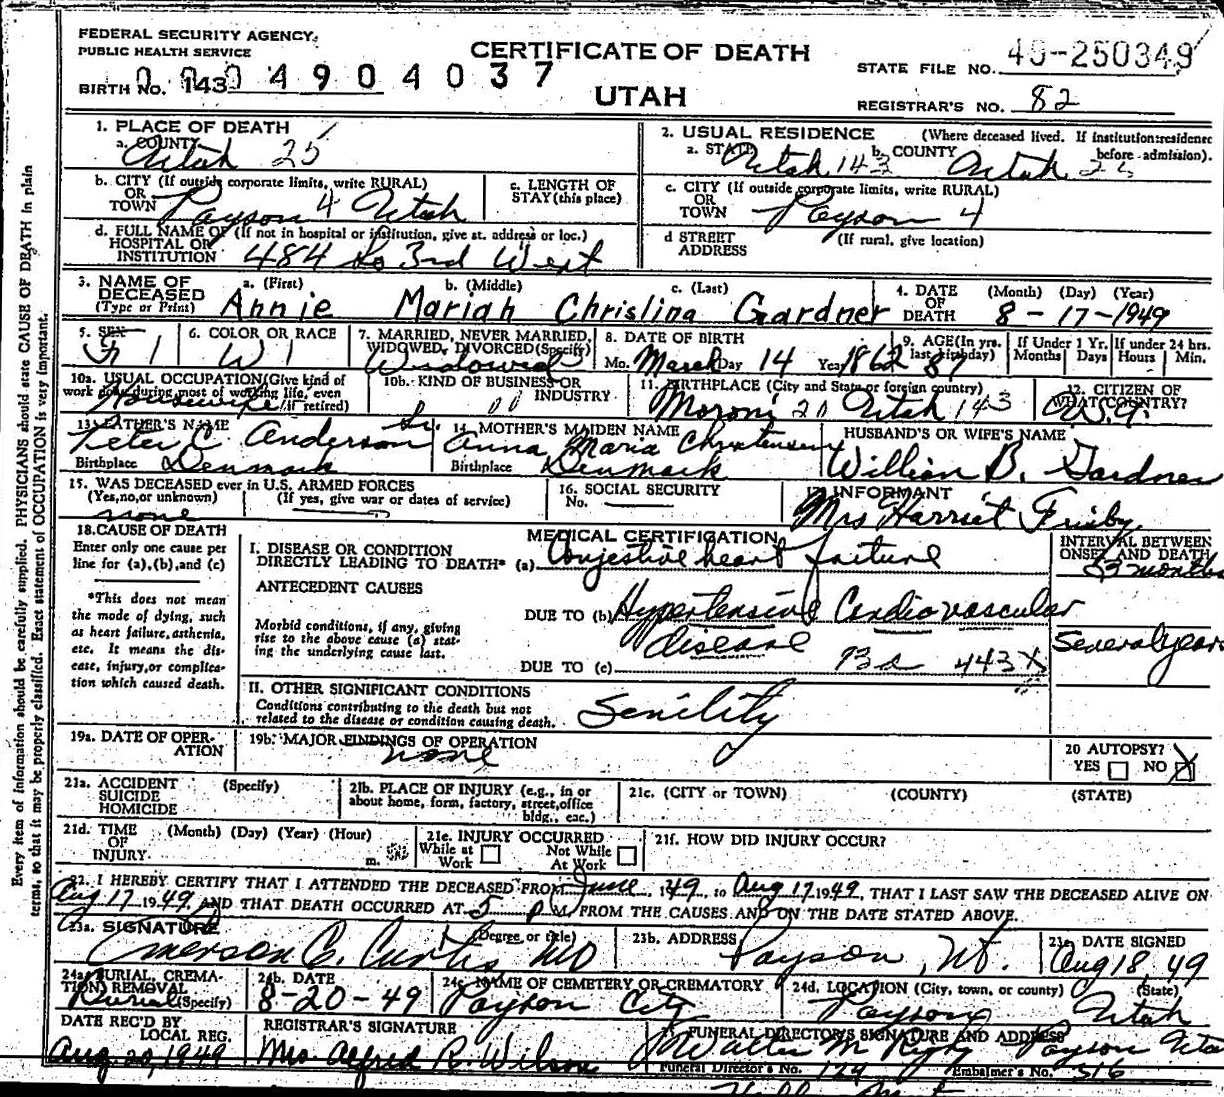 FEDERAL SECURITY AGENCY
PUBLIC HEALTH SERVICE
CERTIFICATE OF DEATH
STATE FILE NO. 49-250349
BIRTH NO. 143 0004904037
UTAH
REGISTRAR'S NO. 82
1. PLACE OF DEATH
a. COUNTY Utah 25
2. USUAL RESIDENCE (Where deceased lived. If institution: residence before admission).
a. STATE Utah 143 b. COUNTY Utah 25
b. CITY (If outside corporate limits, write RURAL) OR TOWN Payson 4 Utah
c. LENGTH OF STAY (this place)
c. CITY (If outside corporate limits, write RURAL) OR TOWN Payson 4
d. FULL NAME OF (If not in hospital or institution, give st. address or loc.) HOSPITAL OR INSTITUTION 484 So 3rd West
d STREET ADDRESS (If rural, give location)
3. NAME OF DECEASED (Type or Print)
a. (First) b. (Middle) c. (Last)
Annie Mariah Christina Gardner
4. DATE OF DEATH (Month) (Day) (Year)
8-17-1949
5. SEX F 1
6. COLOR OR RACE W 1
7. MARRIED, NEVER MARRIED, WIDOWED, DIVORCED (Specify) Widowed
8. DATE OF BIRTH
Mo. March Day 14 Year 1862
9. AGE (In yrs. last birthday) 87
If Under 1 Yr. Months Days
If under 24 hrs. Hours Min.
10a. USUAL OCCUPATION (Give kind of work done during most of working life, even if retired) Housewife
10b. KIND OF BUSINESS OR INDUSTRY
11. BIRTHPLACE (City and State or foreign country)
Moroni 20 Utah 143
12. CITIZEN OF WHAT COUNTRY? U.S.A.
13. FATHER'S NAME
Peter C. Anderson Sr.
Birthplace Denmark
14. MOTHER'S MAIDEN NAME
Anna Maria Christensen
Birthplace Denmark
HUSBAND'S OR WIFE'S NAME
William B. Gardner
15. WAS DECEASED ever in U.S. ARMED FORCES
(Yes, no, or unknown) (If yes, give war or dates of service)
none
16. SOCIAL SECURITY No.
17. INFORMANT
Mrs Harriet
18. CAUSE OF DEATH
Enter only one cause per line for (a), (b), and (c)
*This does not mean the mode of dying, such as heart failure, asthenia, etc. It means the disease, injury, or complication which caused death.
MEDICAL CERTIFICATION
I. DISEASE OR CONDITION DIRECTLY LEADING TO DEATH* (a) Congestive heart failure
INTERVAL BETWEEN ONSET AND DEATH
3 months
ANTECEDENT CAUSES
Morbid conditions, if any, giving rise to the above cause (a) stating the underlying cause last.
DUE TO (b) Hypertensive Cardiovascular disease
Several years
DUE TO (c) 443X
II. OTHER SIGNIFICANT CONDITIONS
Conditions contributing to the death but not related to the disease or condition causing death. Senility
19a. DATE OF OPERATION
19b. MAJOR FINDINGS OF OPERATION
none
20 AUTOPSY?
YES NO X
21a. ACCIDENT SUICIDE HOMICIDE (Specify)
21b. PLACE OF INJURY (e.g., in or about home, form, factory, street, office bldg., exc.)
21c. (CITY or TOWN) (COUNTY) (STATE)
21d. TIME OF INJURY (Month) (Day) (Year) (Hour) m.
21e. INJURY OCCURRED
While at Work Not While At Work
21f. HOW DID INJURY OCCUR?
22. I HEREBY CERTIFY THAT I ATTENDED THE DECEASED FROM June, 1949, to Aug 17, 1949, THAT I LAST SAW THE DECEASED ALIVE ON
Aug 17 1949, AND THAT DEATH OCCURRED AT 5 P M, FROM THE CAUSES AND ON THE DATE STATED ABOVE.
23a. SIGNATURE (Degree or title)
Emerson C. Curtis MD
23b. ADDRESS
Payson, Ut.
23c. DATE SIGNED
Aug 18, 49
24a. BURIAL, CREMATION, REMOVAL (Specify) Burial
24b. DATE
8-20-49
24c. NAME OF CEMETERY OR CREMATORY
Payson City
24d. LOCATION (City, town, or county) (State)
Payson Utah
DATE REC'D BY LOCAL REG.
Aug. 20, 1949
REGISTRAR'S SIGNATURE
Mrs. Alfred R. Wilson
FUNERAL DIRECTOR'S SIGNATURE AND ADDRESS
Walter M Payson Utah
Funeral Director's No. 124 Embalmer's No. 316
Every item of information should be carefully supplied. PHYSICIANS should state CAUSE OF DEATH in plain
terms, so that it may be properly classified. Exact statement of OCCUPATION is very important.